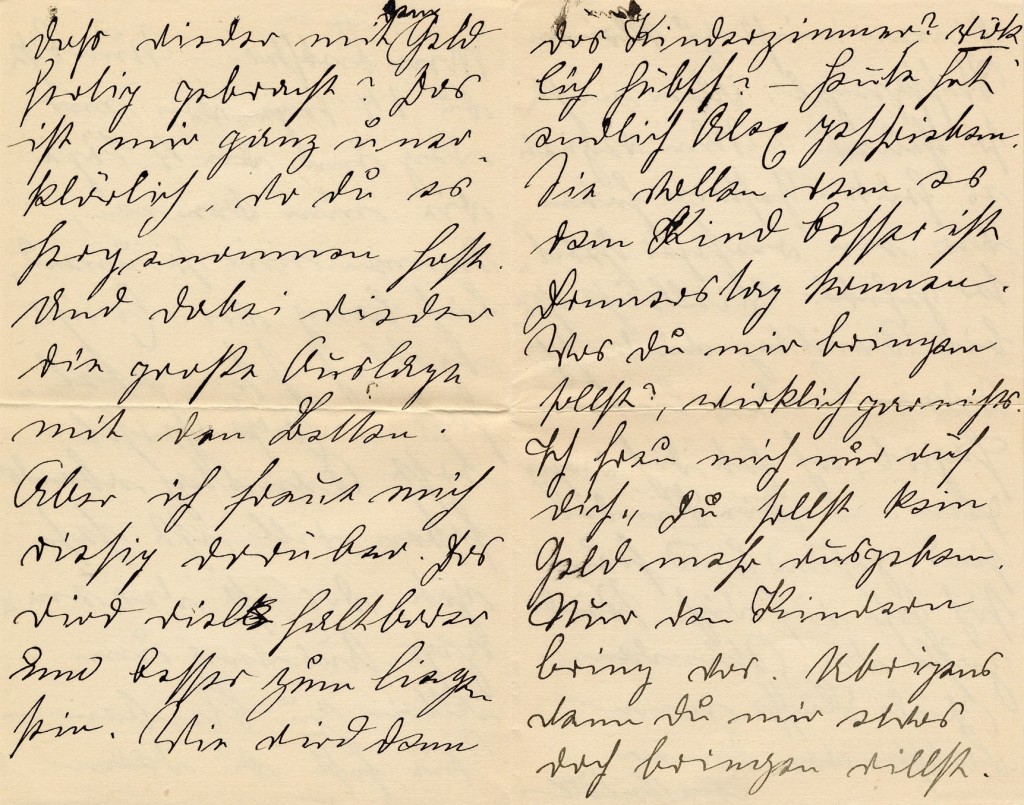 das wieder mit dem Geld
fertig gebracht? Das
ist mir ganz uner-
klärlich, wo du es
hergenommen hast.
Und dabei wieder
die große Auslage
mit den Betten.
Aber ich freue mich
riesig darüber. Das
wird viel haltbarer
und besser zum liegen
sein. Wie wird denn
das Kinderzimmer? wirk
lich hübsch? – Heute hat
endlich Alex geschrieben.
Sie wollen wenn es
dem Kind besser ist
Donnerstag kommen.
Was du mir bringen
sollst?, wirklich garnichts.
Ich freu mich nur auf
dich., du sollst kein
Geld mehr ausgeben.
Nur den Kindern
bring was. Übrigens
wenn du mir etwas
doch bringen willst.